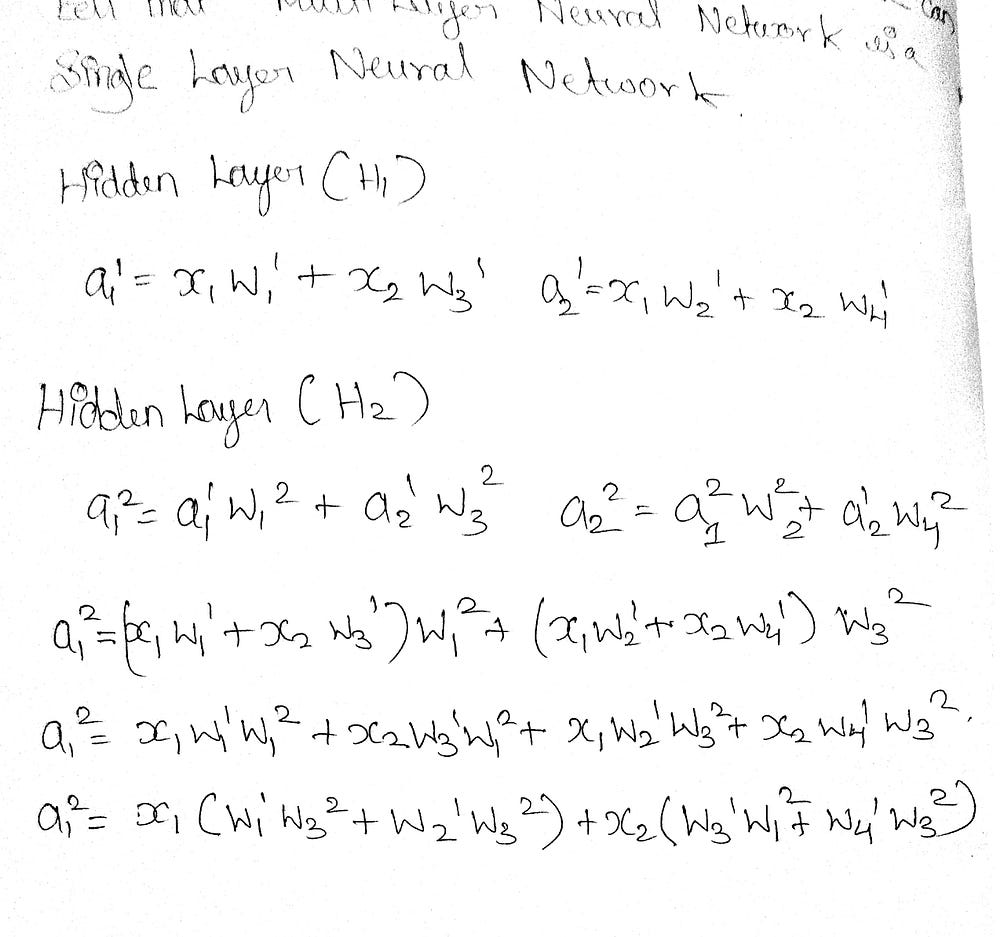 Neural Network is a Can
Single Layer Neural Network.
Hidden Layer (H₁)
a₁¹ = x₁ W₁¹ + x₂ W₃¹ a₂¹ = x₁ W₂¹ + x₂ W₄¹
Hidden Layer (H₂)
a₁² = a₁¹ W₁² + a₂¹ W₃² a₂² = a₁² W₂² + a₂¹ W₄²
a₁² = (x₁ W₁¹ + x₂ W₃¹) W₁² + (x₁ W₂¹ + x₂ W₄¹) W₃²
a₁² = x₁ W₁¹ W₁² + x₂ W₃¹ W₁² + x₁ W₂¹ W₃² + x₂ W₄¹ W₃².
a₁² = x₁ (W₁¹ W₃² + W₂¹ W₃²) + x₂ (W₃¹ W₁² + W₄¹ W₃²)